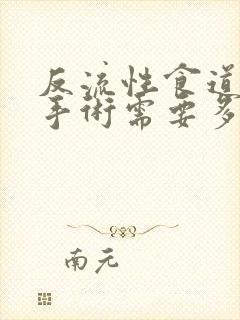 反流性食道
手術需要多
南元